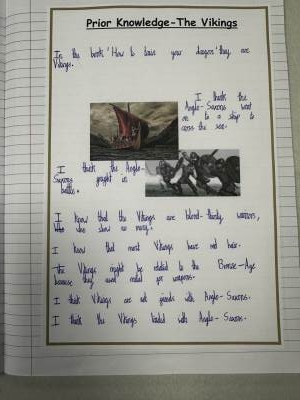 Prior Knowledge-The Vikings
In the book 'How to train your dragon' they are
Vikings.
I think the
Anglo-Saxons went
on to a ship to
cross the sea.
I think the Anglo-
Saxons fought in
battle.
I know that the Vikings are blood-thirsty warriors,
who show no mercy.
I know that most Vikings have red hair.
The Vikings might be related to the Bronze-Age
because they used metal for weapons.
I think Vikings are not friends with Anglo-Saxons.
I think the Vikings traded with Anglo-Saxons.